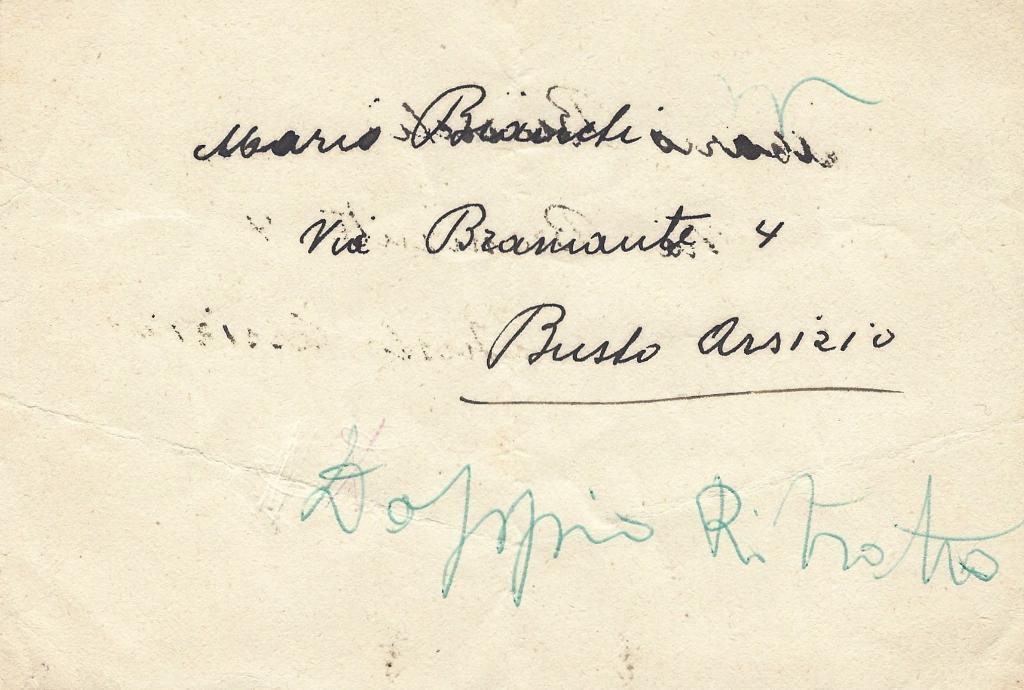 Mario Bianchi
Via Bramante 4
Busto Arsizio
Doppio Ritratto